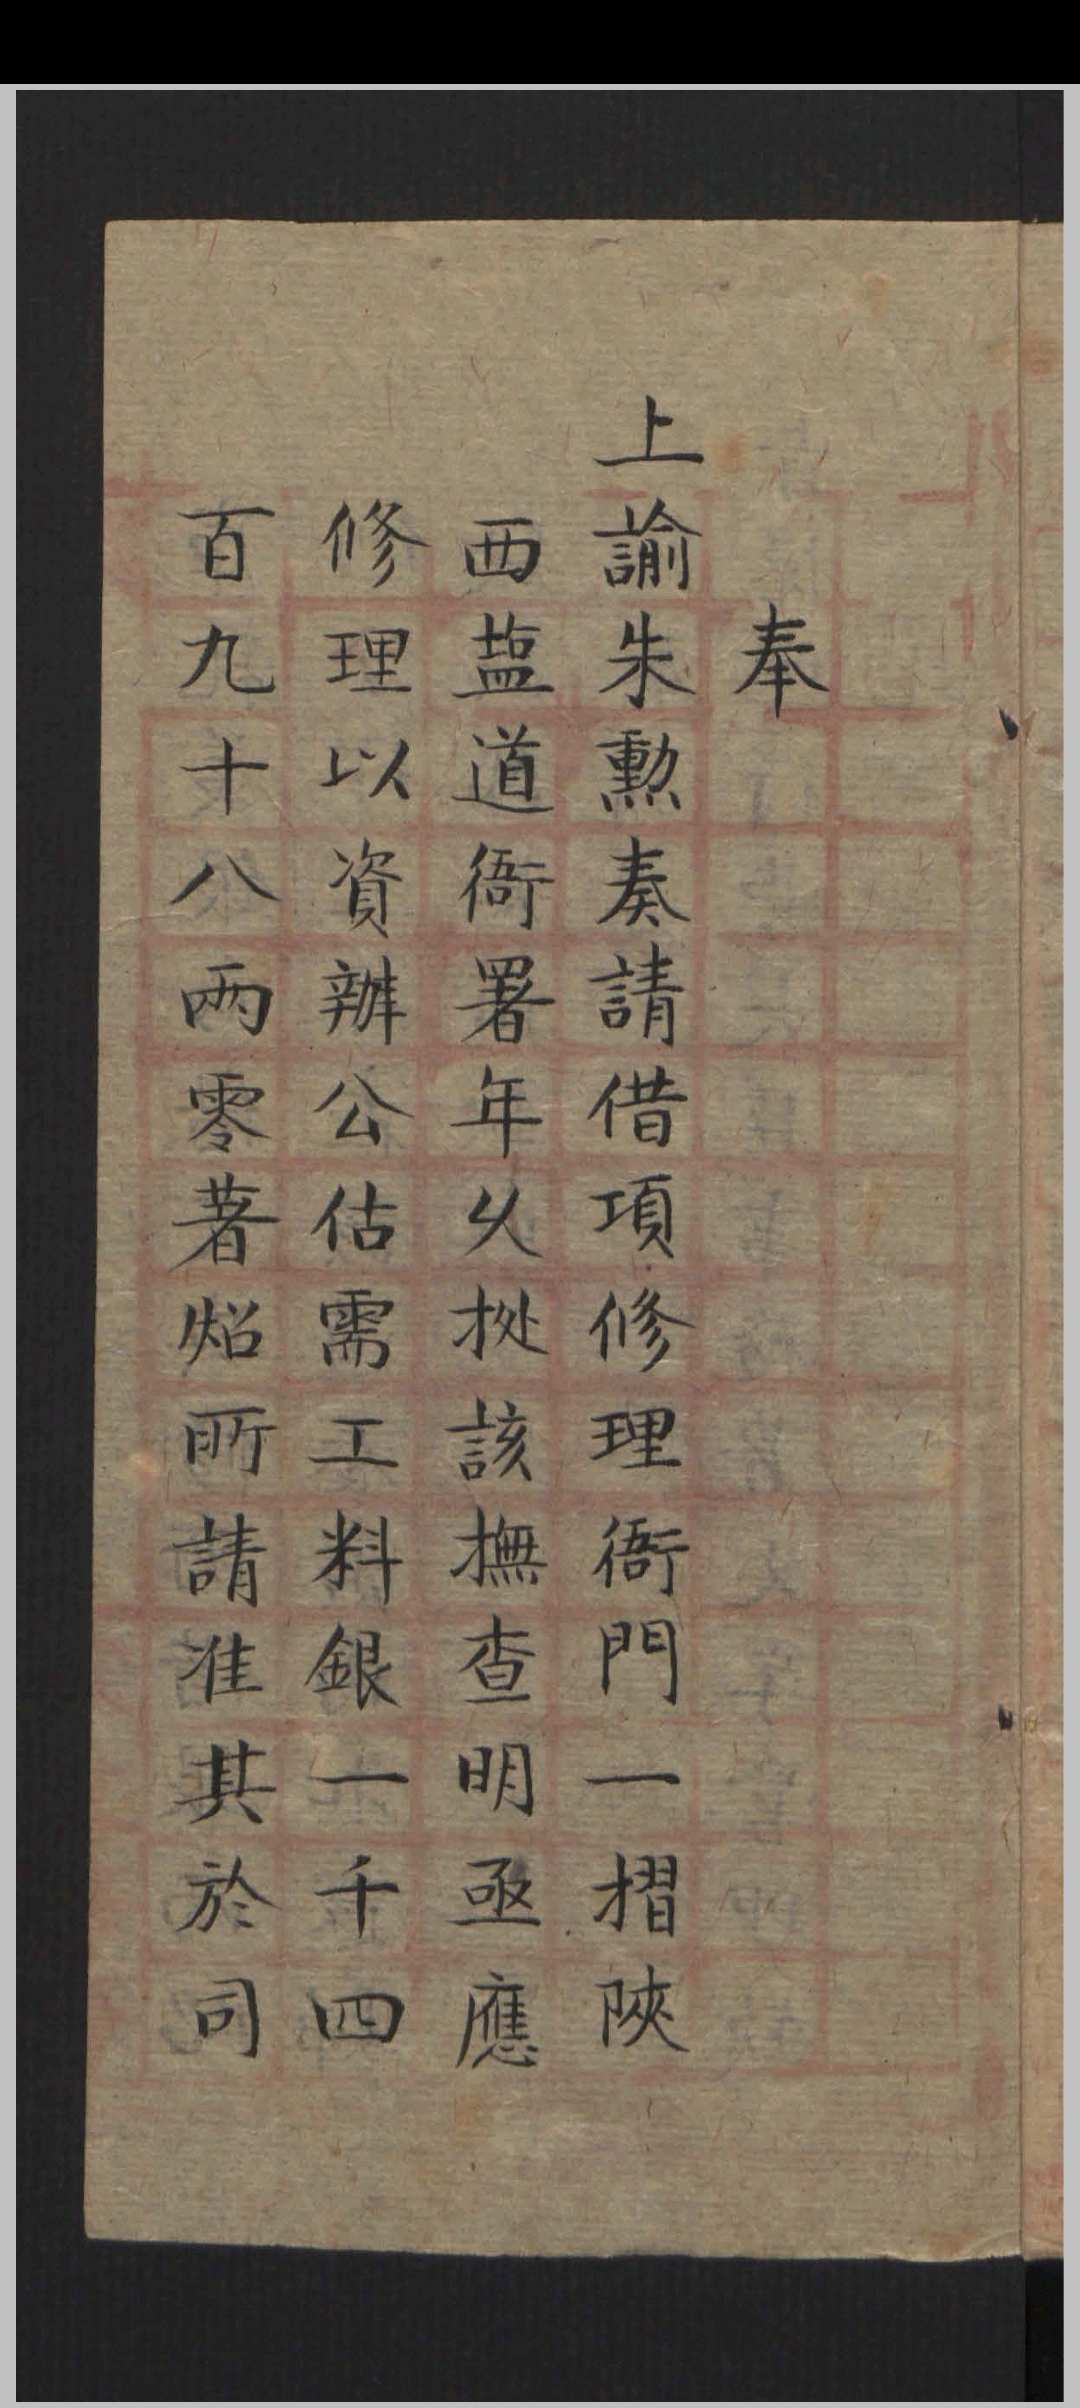 奉
上諭朱勳奏請借項修理衙門一摺陝
西塩道衙署年久拠該撫查明亟應
修理以資辦公估需工料銀一千四
百九十八兩零著炤所請准其於司